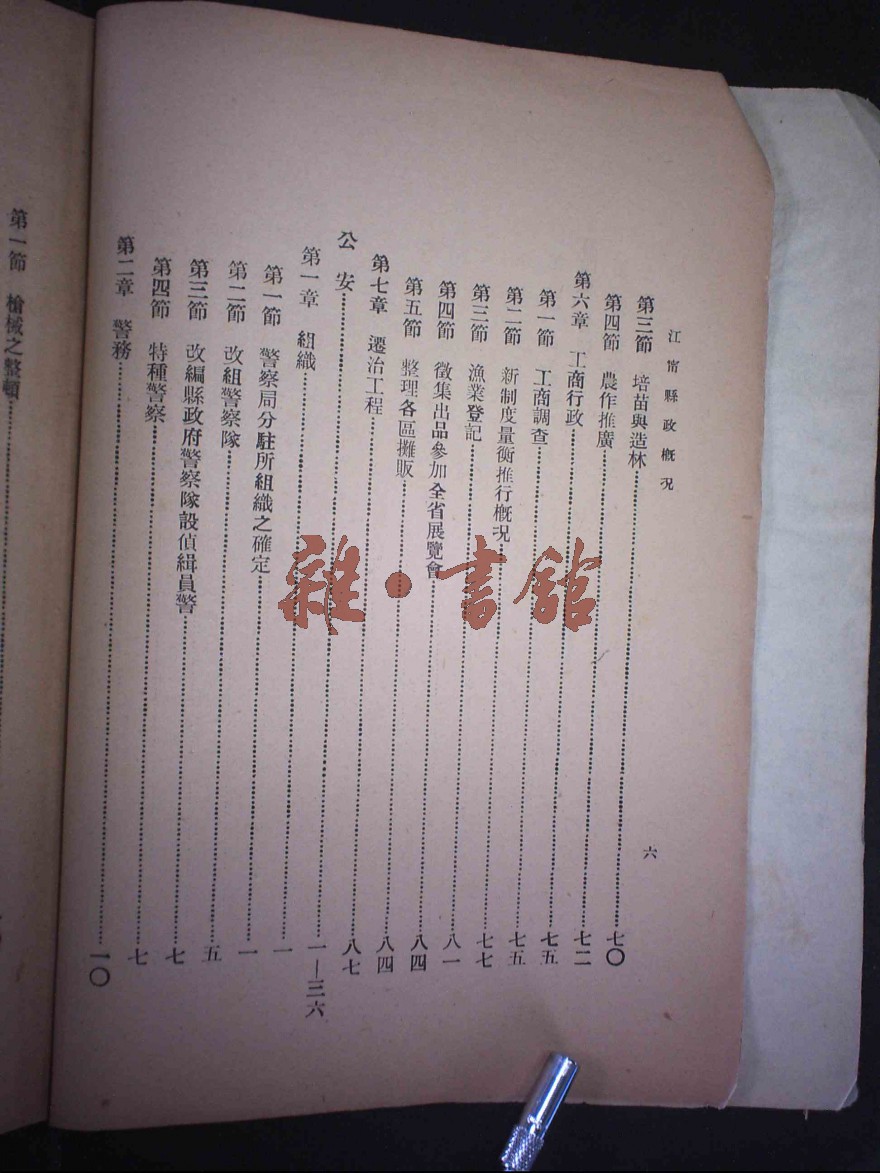 江甯縣政概況 六
第三節 培苗與造林……七〇
第四節 農作推廣……七二
第六章 工商行政……七五
第一節 工商調查……七五
第二節 新制度量衡推行概況……七七
第三節 漁業登記……八一
第四節 徵集出品參加全省展覽會……八四
第五節 整理各區攤販……八四
第七章 遷治工程……八七
公安……一—三六
第一章 組織……一
第一節 警察局分駐所組織之確定……一
第二節 改組警察隊……五
第三節 改編縣政府警察隊設偵緝員警……七
第四節 特種警察……七
第二章 警務……一〇
第一節 槍械之整頓……
雜·書館